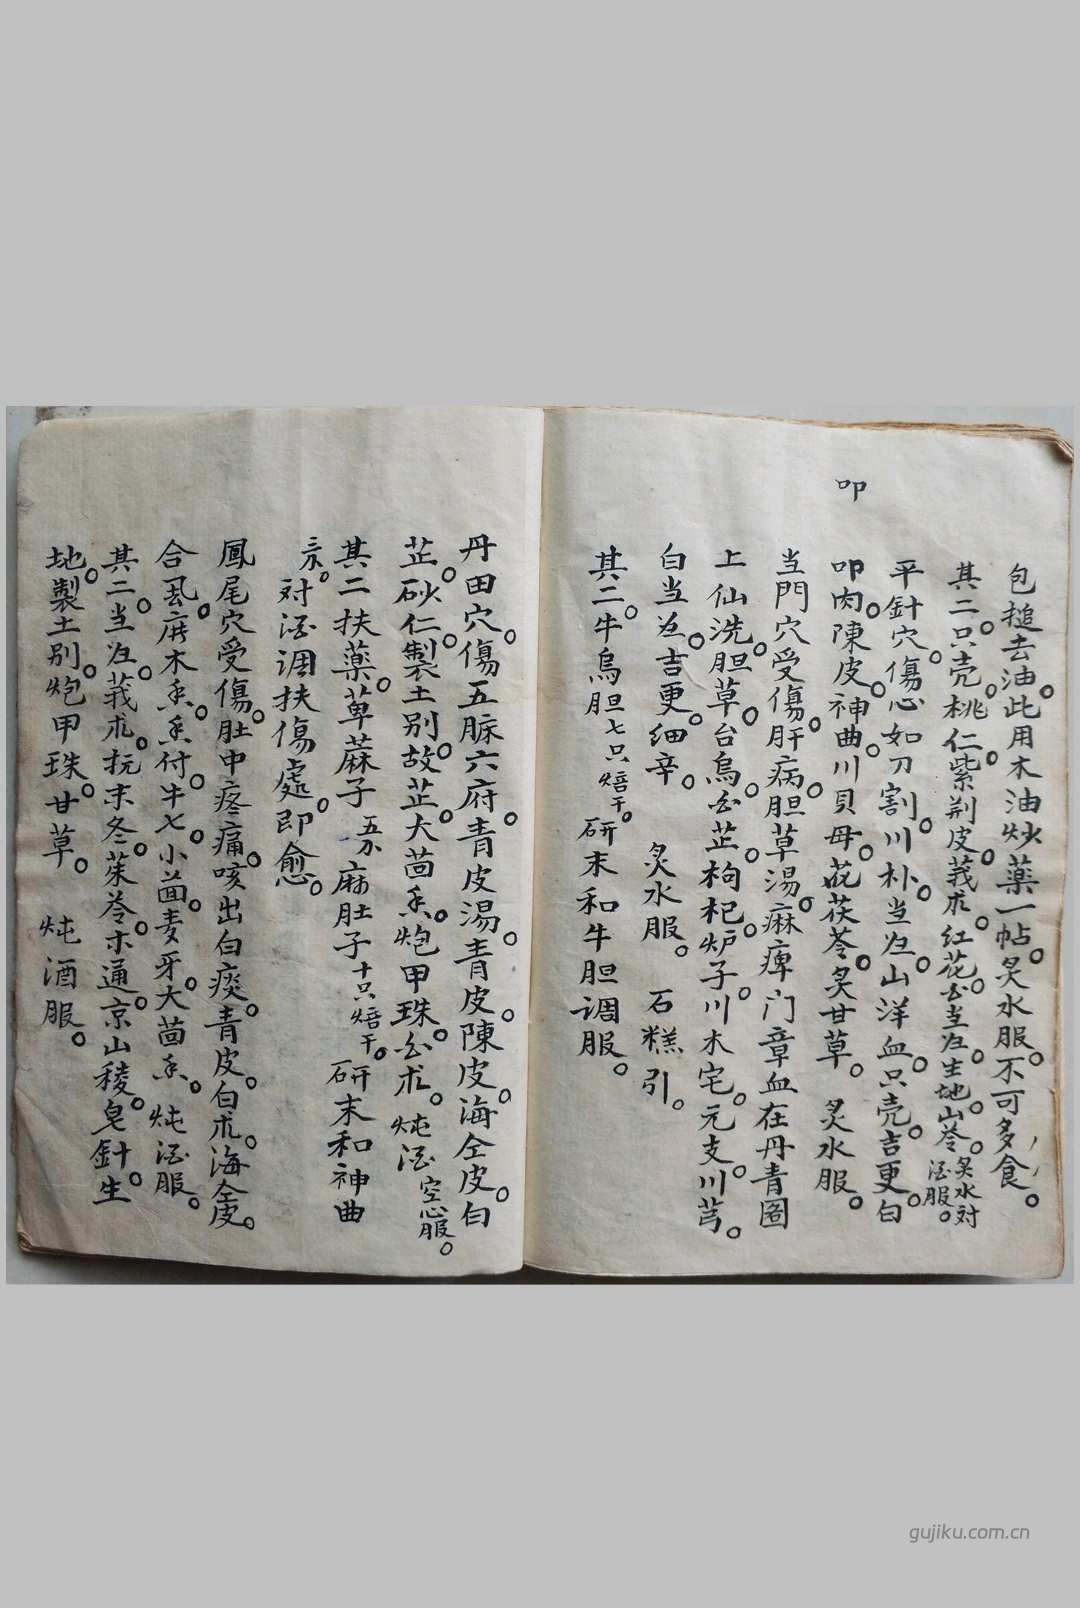 叩
包搥去油。此用木油炒藥一帖。炙水服。不可多食。
其二。只壳。桃仁。紫荆皮。莪朮。红花。全当归。生地。山苓。炙水对酒服。
平針穴傷。心如刀割。川朴。当归。山洋血。只壳。吉更。白
叩肉。陳皮。神曲。川貝母。花茯苓。炙甘草。 炙水服。
当門穴受傷。肝病。胆草湯。麻痺门章血在丹青图
上仙洗胆草。台烏。白芷。枸杞。炉子。川木宅。元支。川芎。
白当归。吉更。细辛。 炙水服。 石糕引。
其二。牛烏胆七只焙干。研末和牛胆调服。
丹田穴。傷五脤六府。青皮湯。青皮。陳皮。海全皮。白
芷。砂仁。製土别。故芷。大茴香。炮甲珠。白朮。炖酒空心服。
其二扶藥。萆蔴子五分麻肚子十只焙干。研末和神曲
京。对酒调扶傷處。即愈。
鳳尾穴受傷。肚中疼痛。咳出白痰。青皮。白朮。海全皮。
合虱。广木香。香付。牛七。小茴。麦牙。大茴香。炖酒服。
其二。当归。莪朮。抚末冬。茱苓。木通。京山稜。皂針。生
地。製土别。炮甲珠。甘草。 炖酒服。
gujiku.com.cn